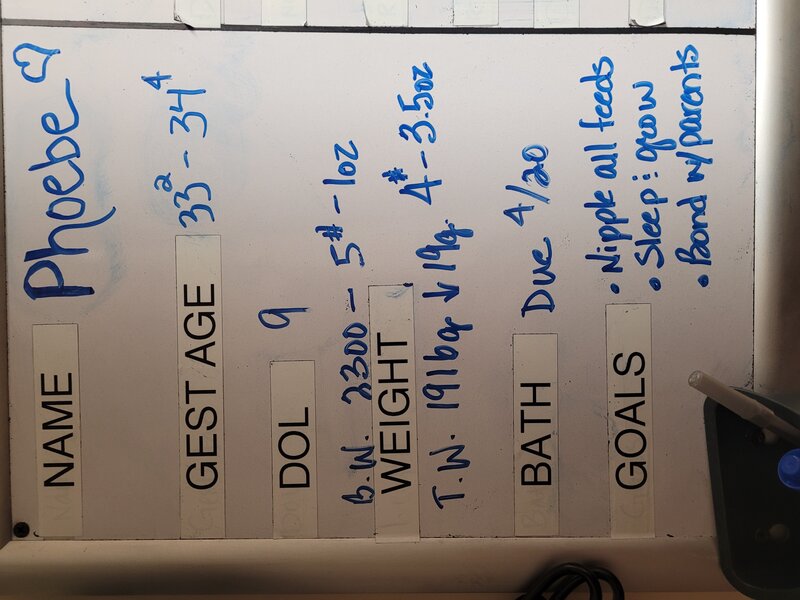 NAME Phoebe ♡
GEST AGE 33² - 34⁴
DOL 9
B.W. 2300 - 5# - 1oz
WEIGHT
T.W. 1916g ↓ 19g. 4# - 3.5oz
BATH Due 4/20
GOALS • Nipple all feeds
• Sleep & grow
• Bond w/parents